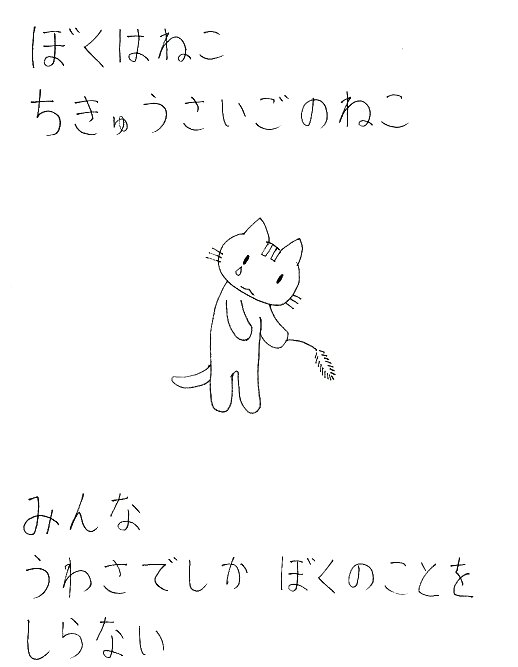 ぼくはねこ
ちきゅうさいごのねこ
みんな
うわさでしか ぼくのことを
しらない